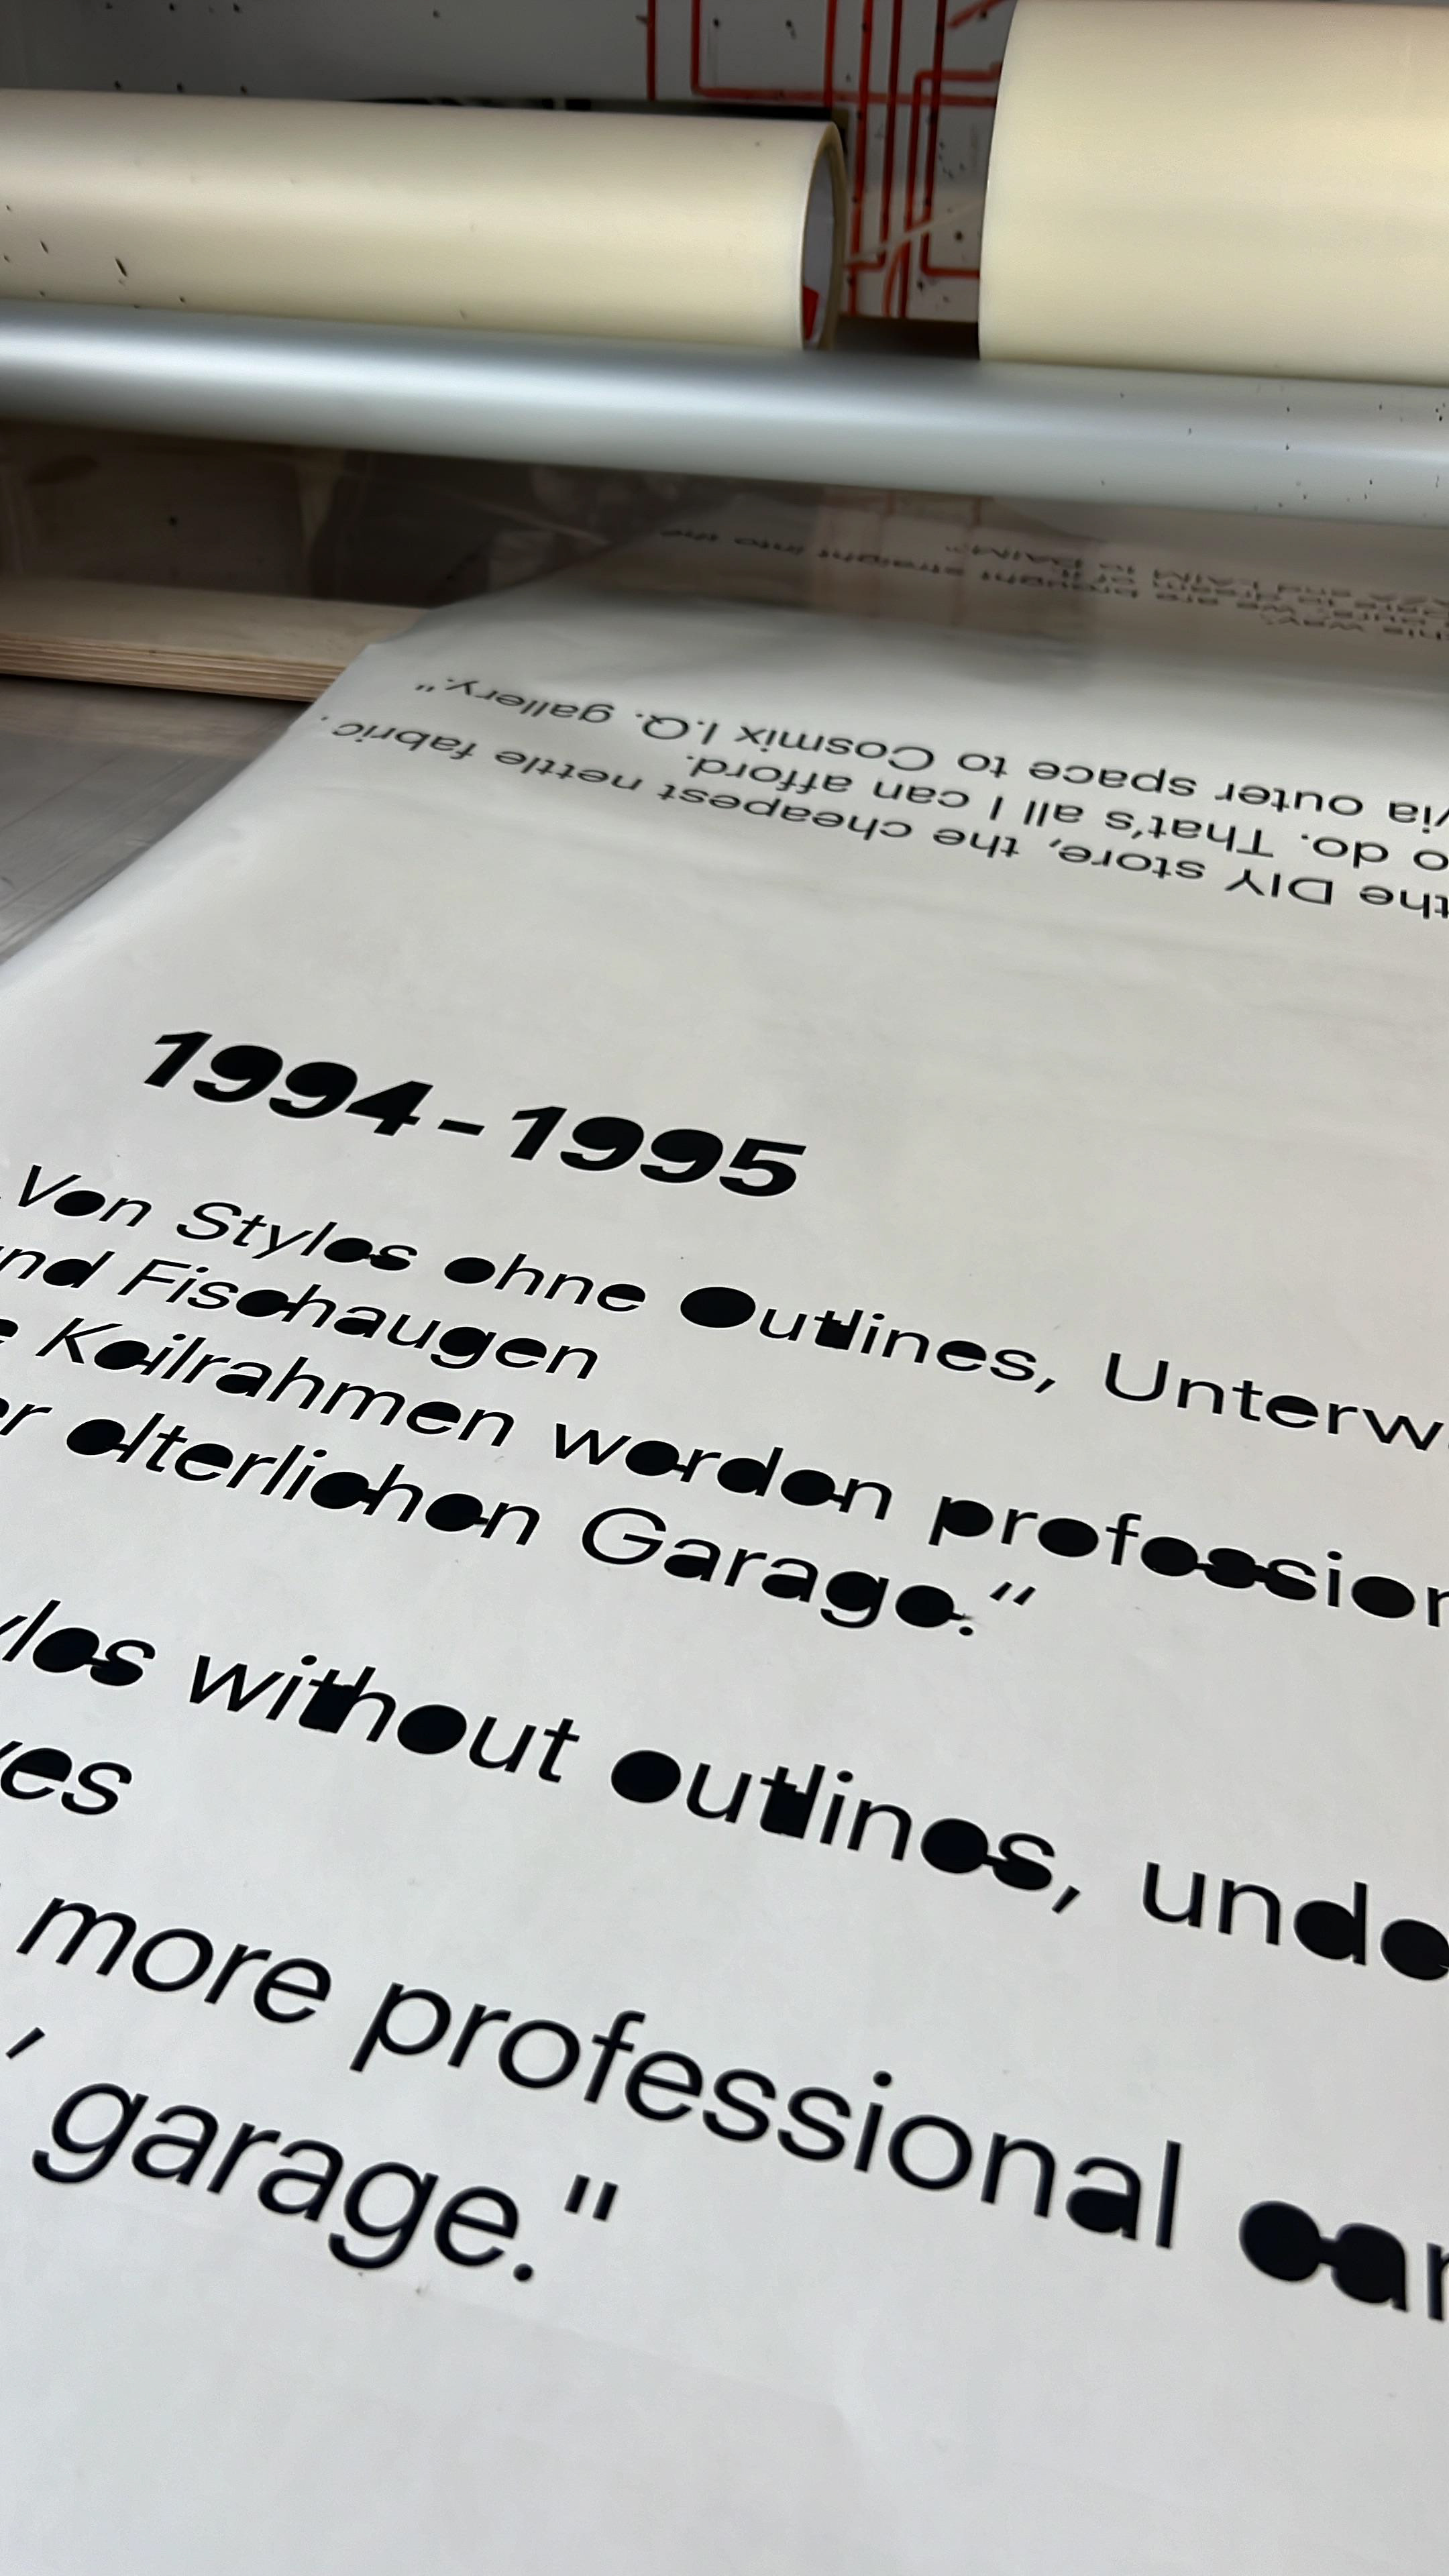 straight into the
the DIY store, the cheapest nettle fabric,
o do. That's all I can afford.
via outer space to Cosmix I.Q. gallery."
1994-1995
Von Styles ohne Outlines, Unterw
und Fischaugen
e Keilrahmen werden profession
er elterlichen Garage.“
yles without outlines, unde
yes
more professional can
' garage."